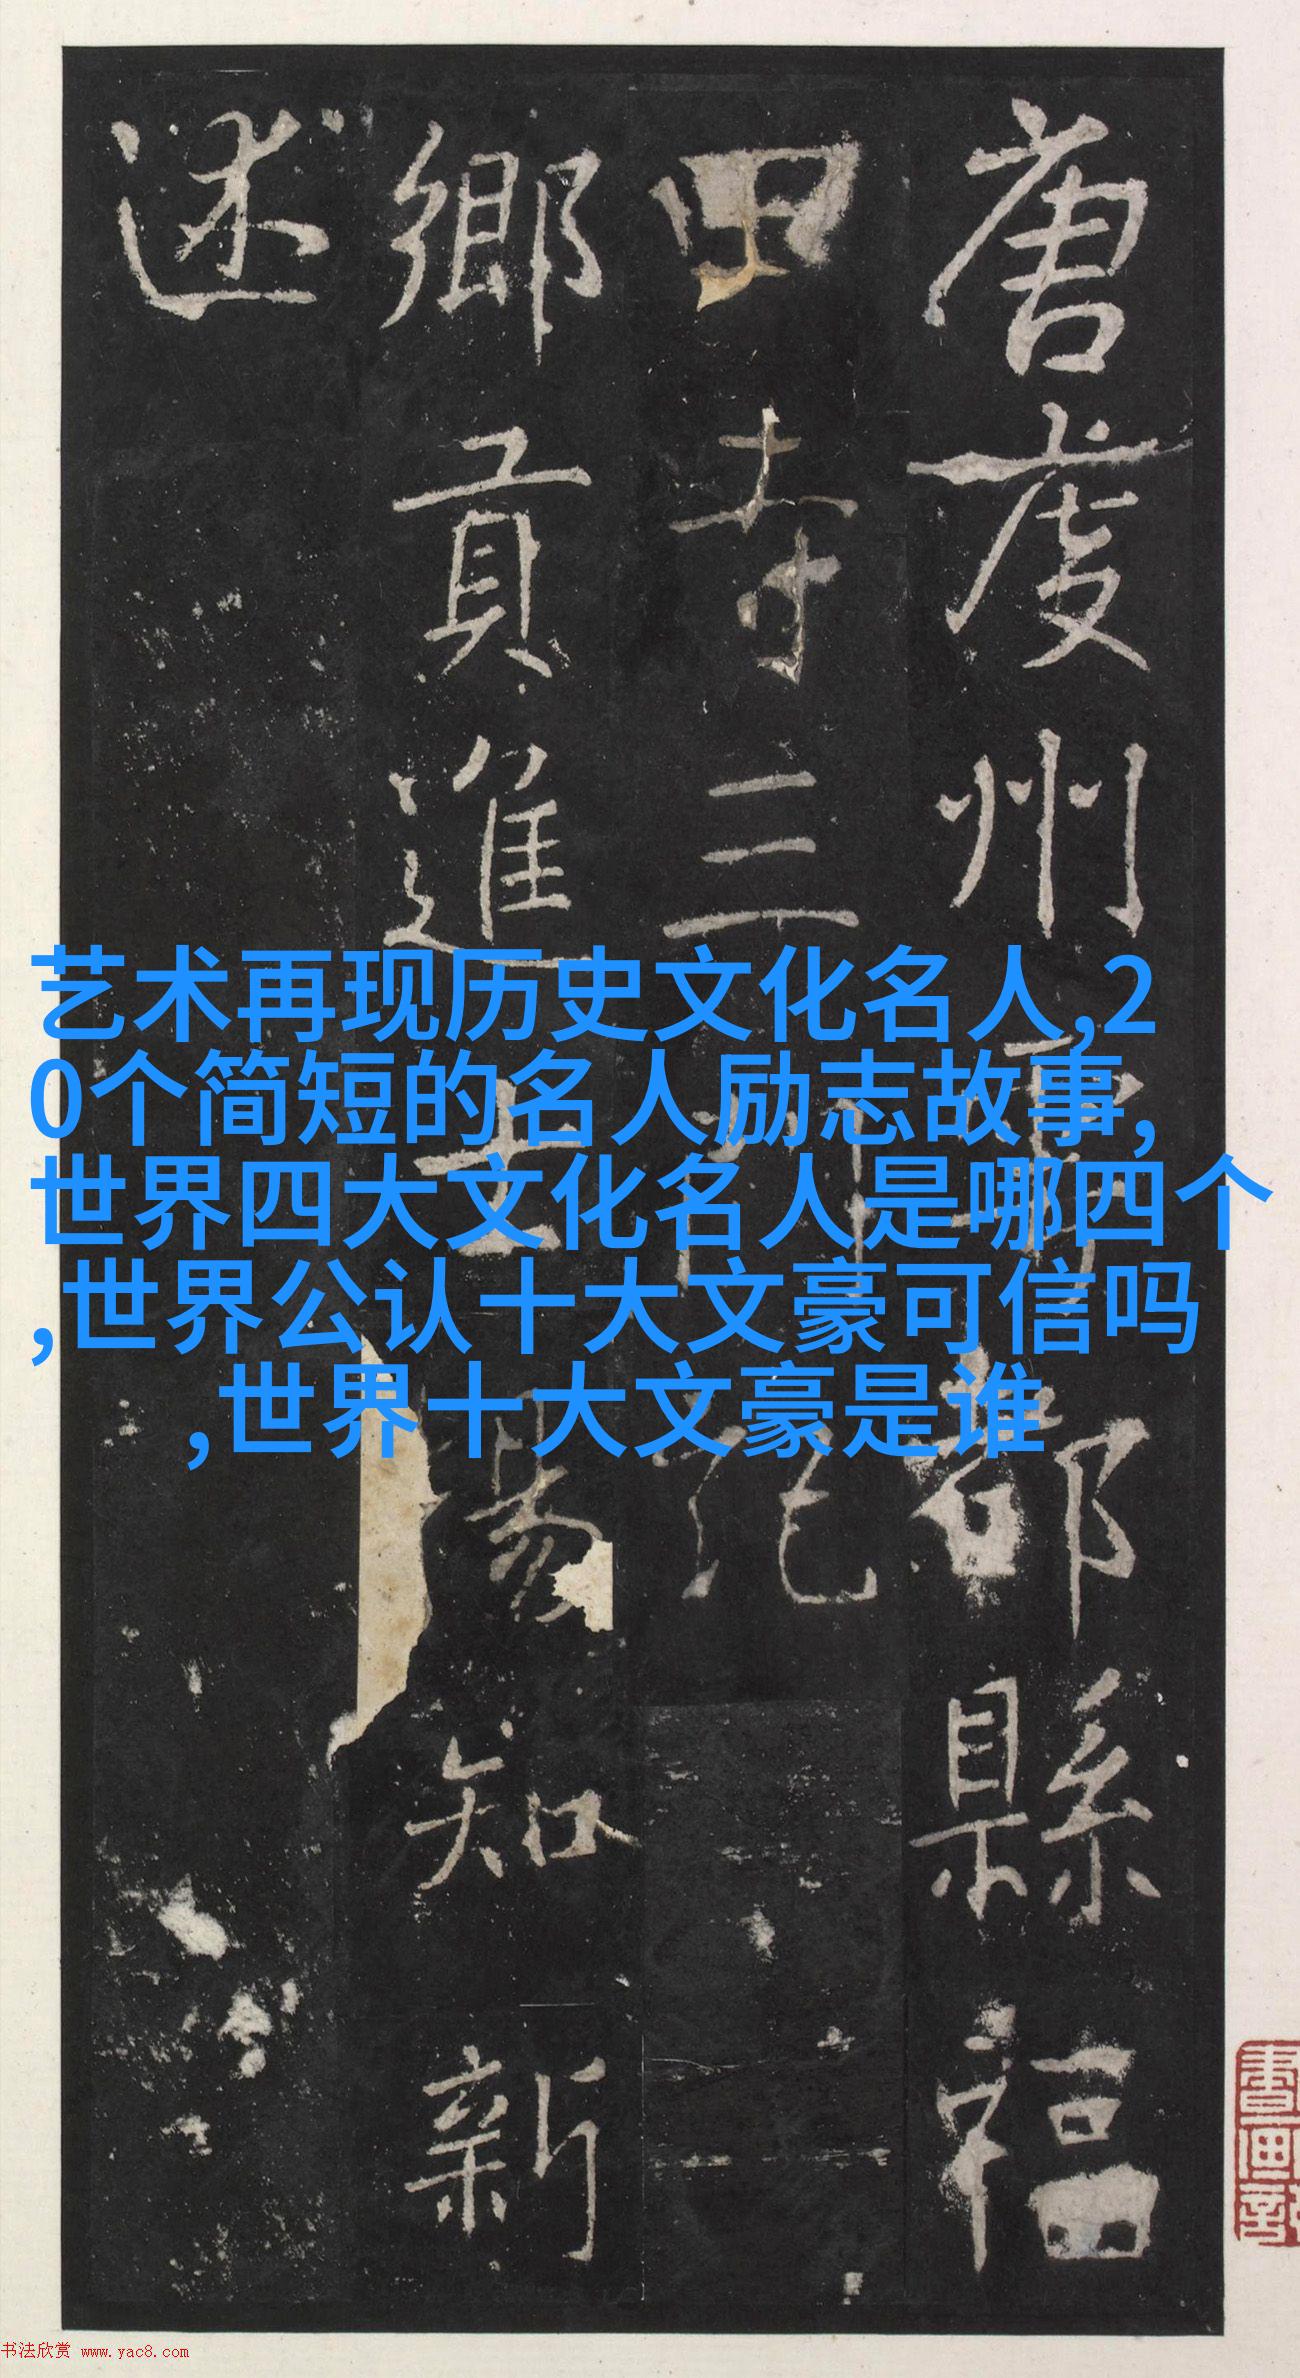 唐虔州
都縣福
田寺三
門記
鄉貢進士
知新
述
艺术再现历史文化名人,2
0个简短的名人励志故事,
世界四大文化名人是哪四个
,世界公认十大文豪可信吗
,世界十大文豪是谁
書画
书法欣赏 www.yac8.com